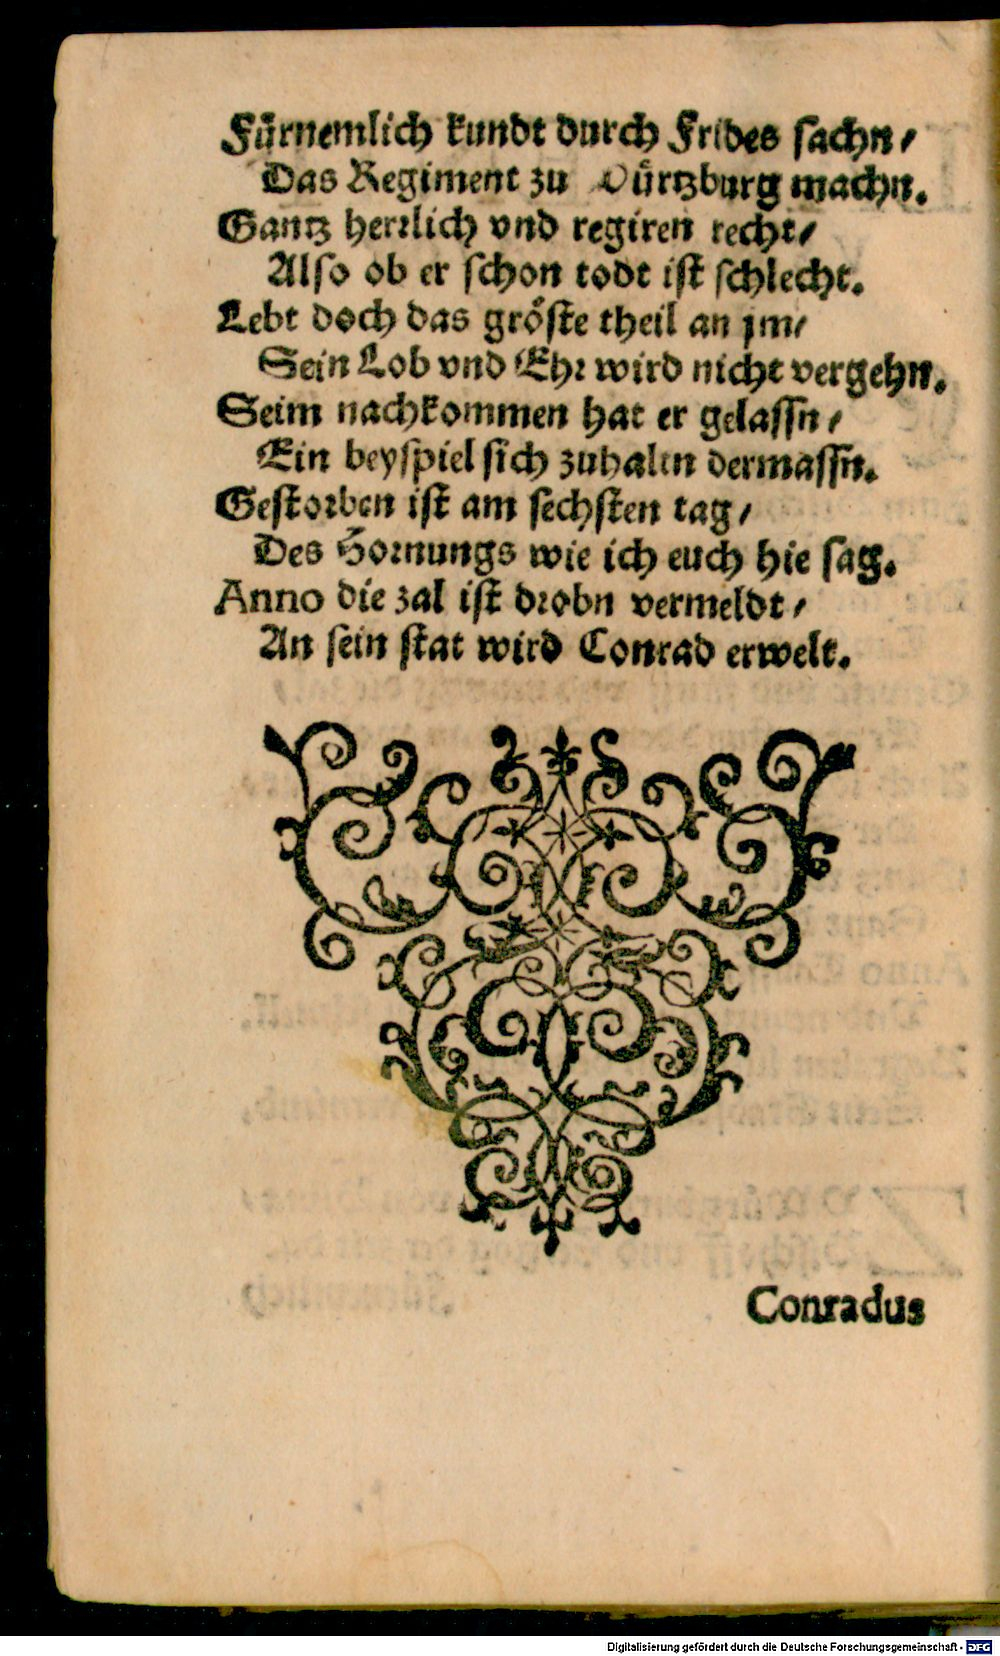 Fürnemlich kundt durch Frides sachn/
Das Regiment zu Würtzburg machn.
Gantz herrlich vnd regiren recht/
Also ob er schon todt ist schlecht.
Lebt doch das gröste theil an jm/
Sein Lob vnd Ehr wird nicht vergehn.
Seim nachkommen hat er gelassn/
Ein beyspiel sich zuhaltn dermassn.
Gestorben ist am sechsten tag/
Des Hornungs wie ich euch hie sag.
Anno die zal ist drobn vermeldt/
An sein stat wird Conrad erwelt.
Conradus
Digitalisierung gefördert durch die Deutsche Forschungsgemeinschaft - DFG